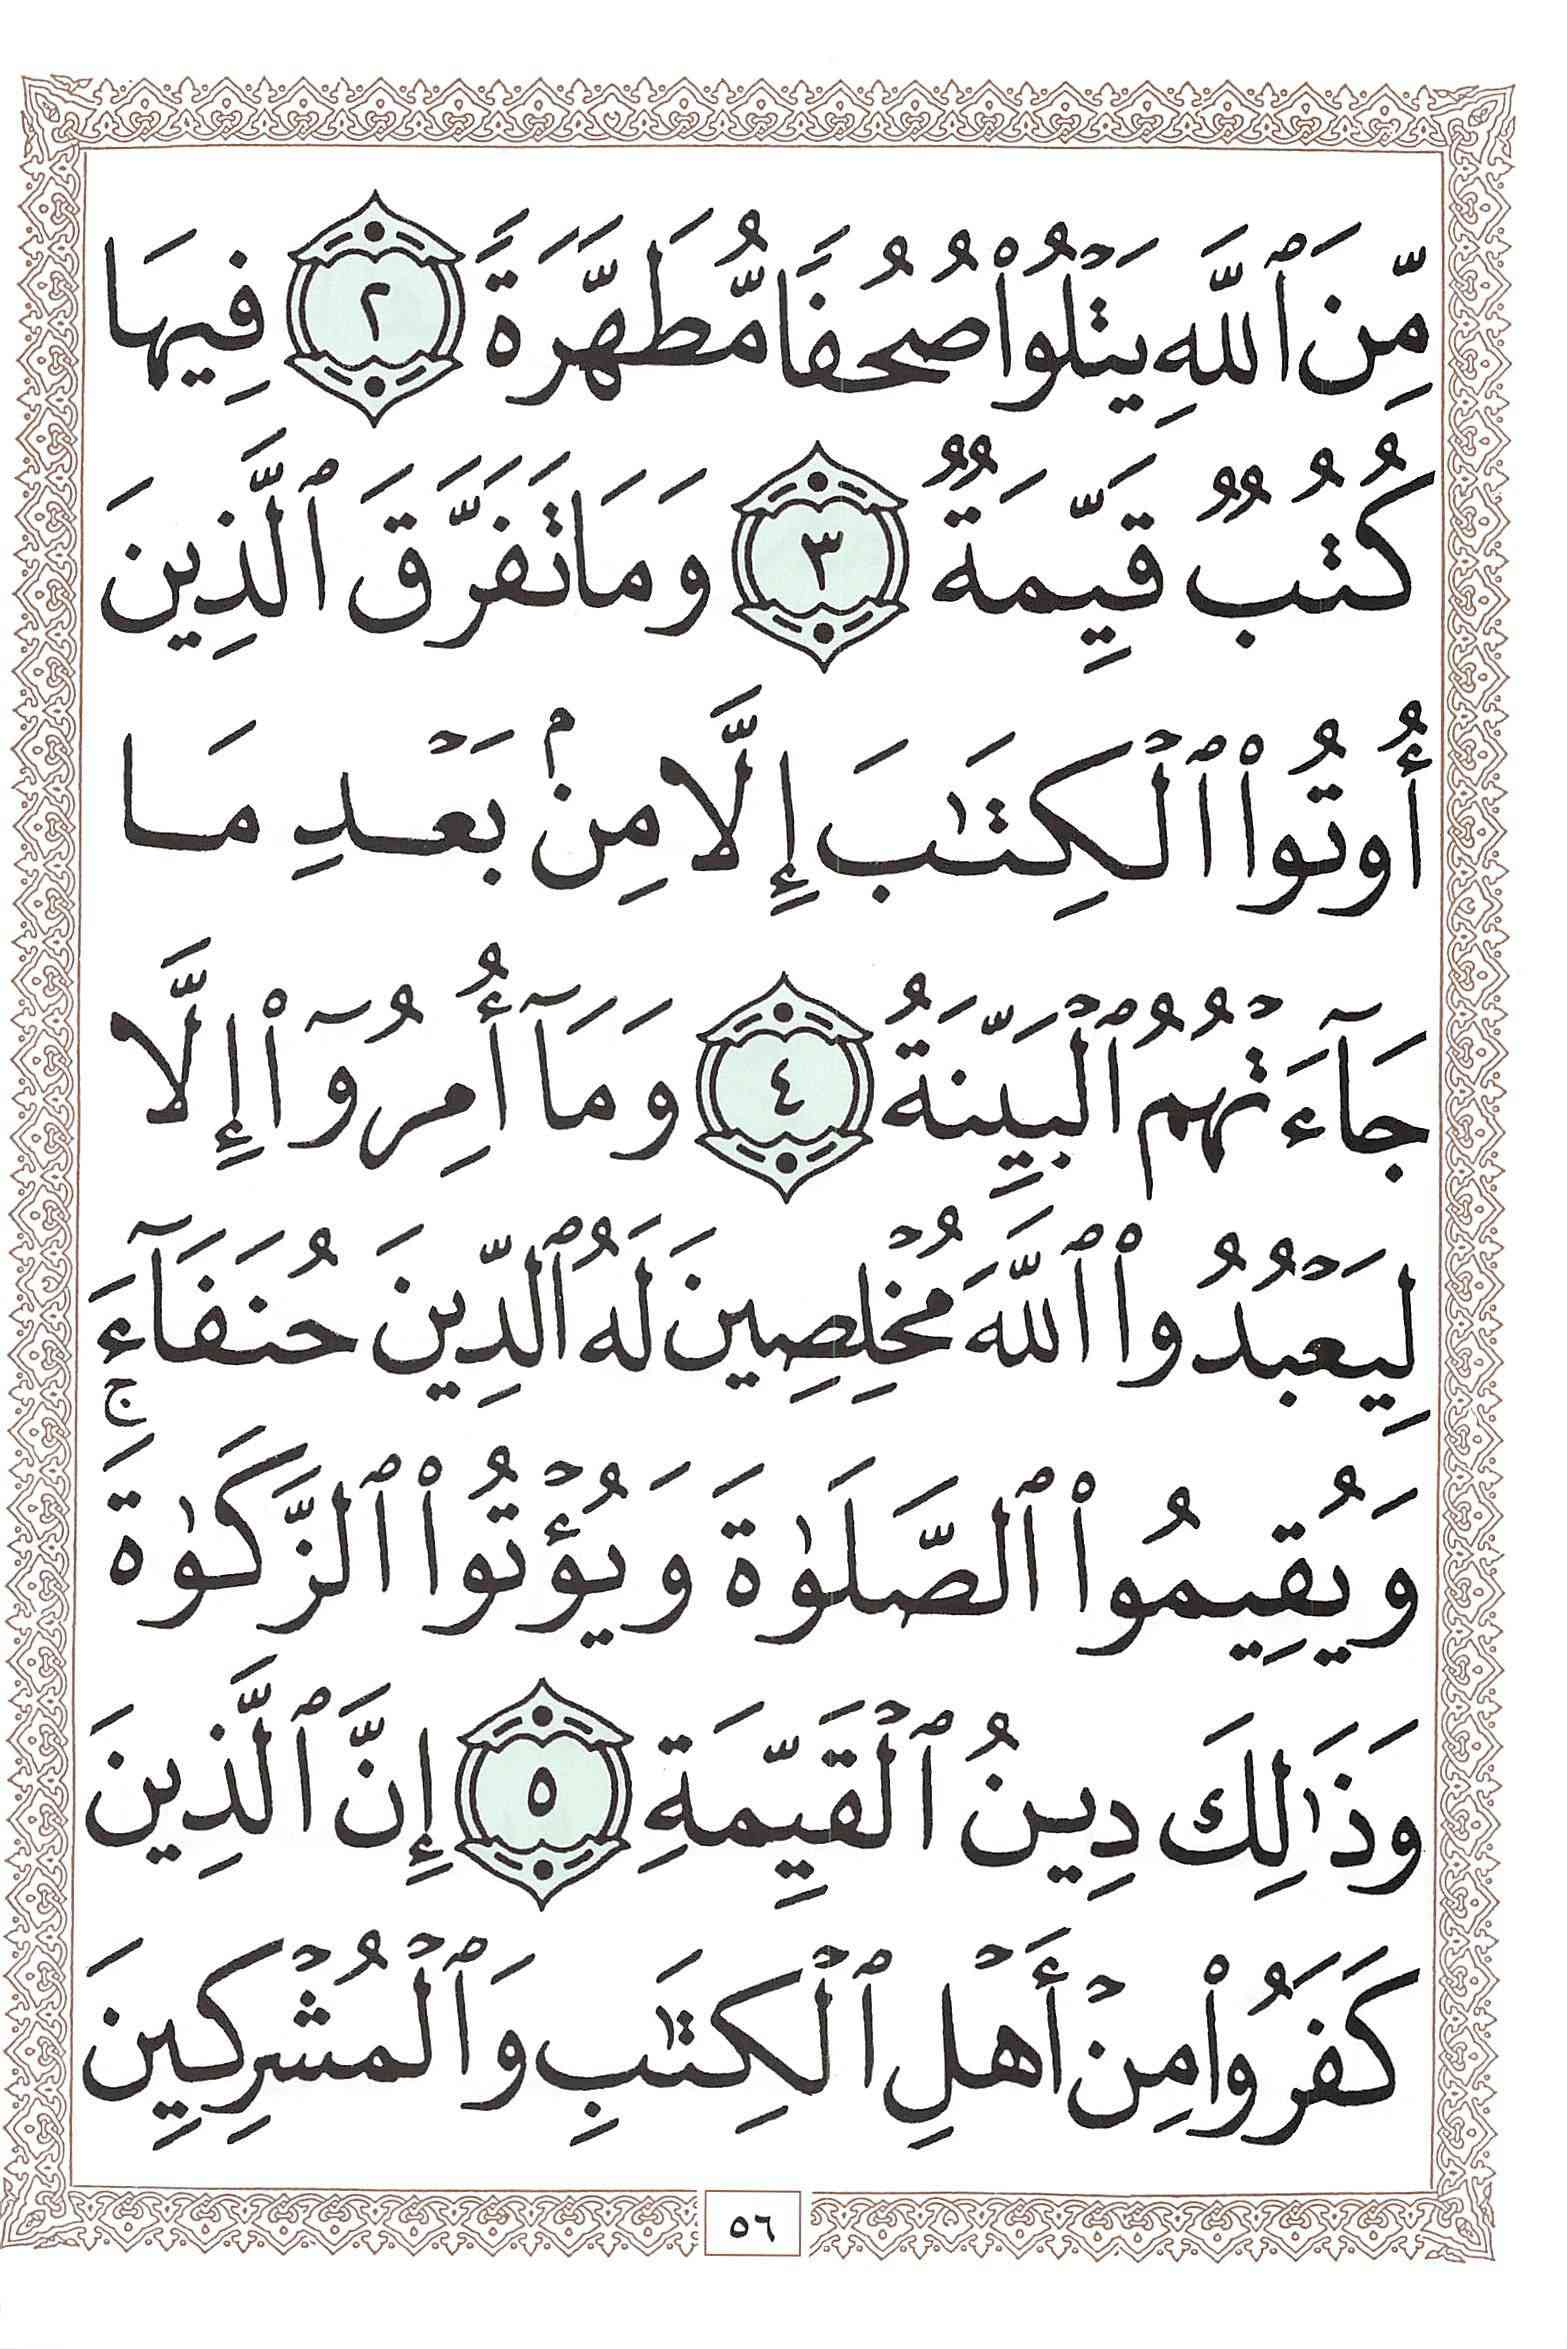 مِّنَ ٱللَّهِ يَتْلُوا۟ صُحُفًا مُّطَهَّرَةً ٢ فِيهَا
كُتُبٌ قَيِّمَةٌ ٣ وَمَا تَفَرَّقَ ٱلَّذِينَ
أُوتُوا۟ ٱلْكِتَٰبَ إِلَّا مِنۢ بَعْدِ مَا
جَآءَتْهُمُ ٱلْبَيِّنَةُ ٤ وَمَآ أُمِرُوٓا۟ إِلَّا
لِيَعْبُدُوا۟ ٱللَّهَ مُخْلِصِينَ لَهُ ٱلدِّينَ حُنَفَآءَ
وَيُقِيمُوا۟ ٱلصَّلَوٰةَ وَيُؤْتُوا۟ ٱلزَّكَوٰةَ ۚ
وَذَٰلِكَ دِينُ ٱلْقَيِّمَةِ ٥ إِنَّ ٱلَّذِينَ
كَفَرُوا۟ مِنْ أَهْلِ ٱلْكِتَٰبِ وَٱلْمُشْرِكِينَ
٥٦